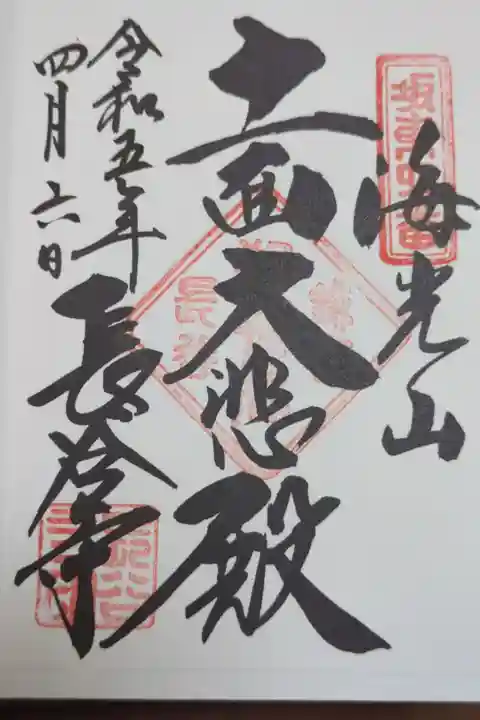 坂東四番
海光山
十一面大悲殿
令和五年
四月六日
長谷寺